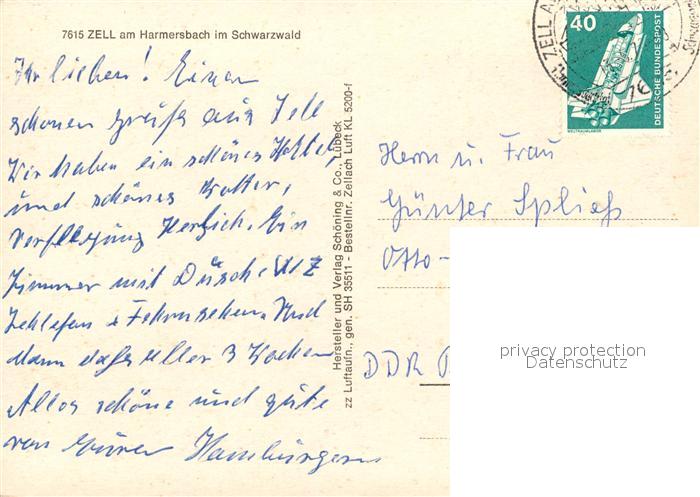 7615 ZELL am Harmersbach im Schwarzwald
Ihr lieben! Einen
schönen Gruß aus Zell
Wir haben ein schönes Hotel,
und schönes Wetter,
Verpflegung Herrlich. Ein
Zimmer mit Dusche WZ
Telefon + Fernsehen. Und
dann das aller 3 Wochen
Alles schöne und gute
von Euren Hamburgern
Hersteller und Verlag Schöning & Co., Lübeck
zz Luftaufn.; gen. SH 35511 - Bestellnr. Zellach Luft KL 5200-f
ZELL A
40
DEUTSCHE BUNDESPOST
WELTRAUMLABOR
Herrn u. Frau
Günter Spließ
Otto-
DDR
privacy protection
Datenschutz